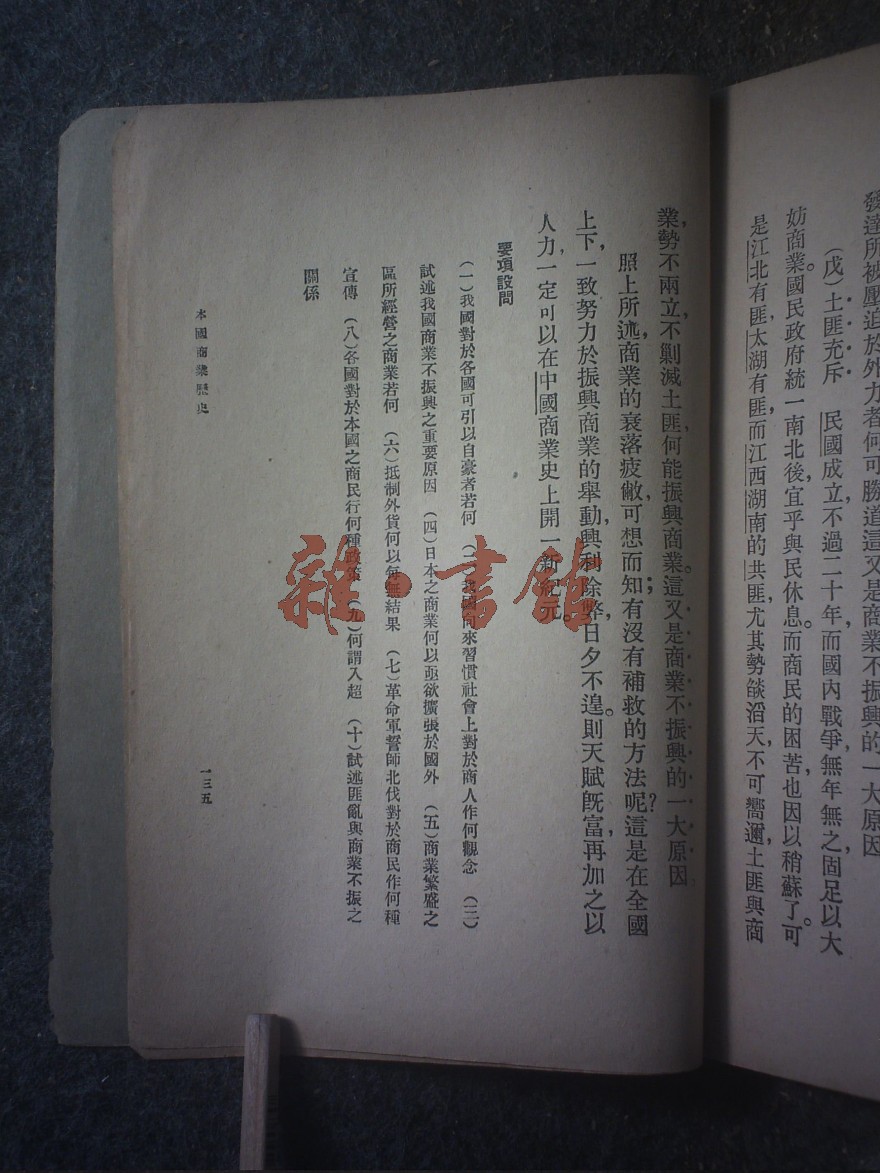 發達所被壓迫於外力者何可勝道這又是商業不振興的一大原因
(戊)土匪充斥 民國成立,不過二十年,而國內戰爭,無年無之,固足以大
妨商業。國民政府統一南北後,宜乎與民休息。而商民的困苦也因以稍蘇了。可
是江北有匪,太湖有匪,而江西湖南的共匪,尤其勢燄滔天,不可嚮邇,土匪與商
業,勢不兩立,不剿滅土匪,何能振興商業。這又是商業不振興的一大原因
照上所述,商業的衰落疲敝,可想而知;有沒有補救的方法呢?這是在全國
上下,一致努力於振興商業的舉動,興利除弊,日夕不遑。則天賦既富,再加之以
人力,一定可以在中國商業史上開一新紀元。
要項設問
(一)我國對於各國可引以自豪者若何 (二)我國向來習慣社會上對於商人作何觀念 (三)
試述我國商業不振興之重要原因 (四)日本之商業何以亟欲擴張於國外 (五)商業繁盛之
區所經營之商業若何 (六)抵制外貨何以每無結果 (七)革命軍誓師北伐對於商民作何種
宣傳 (八)各國對於本國之商民行何種政策 (九)何謂入超 (十)試述匪亂與商業不振之
關係
本國商業歷史
一三五
雜·書館